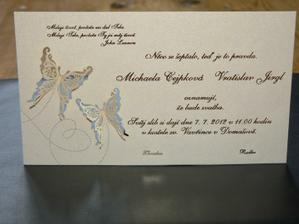 Miluji život, protože mi dal Tebe.
Miluji Tebe, protože Ty jsi můj život.
John Lennon
Něco se šeptalo, teď je to pravda.
Michaela Cejpková Vratislav Jergl
oznamují,
že bude svatba.
Svůj slib si dají dne 7. 7. 2012 v 11.00 hodin
v kostele sv. Vavřince v Domašově.